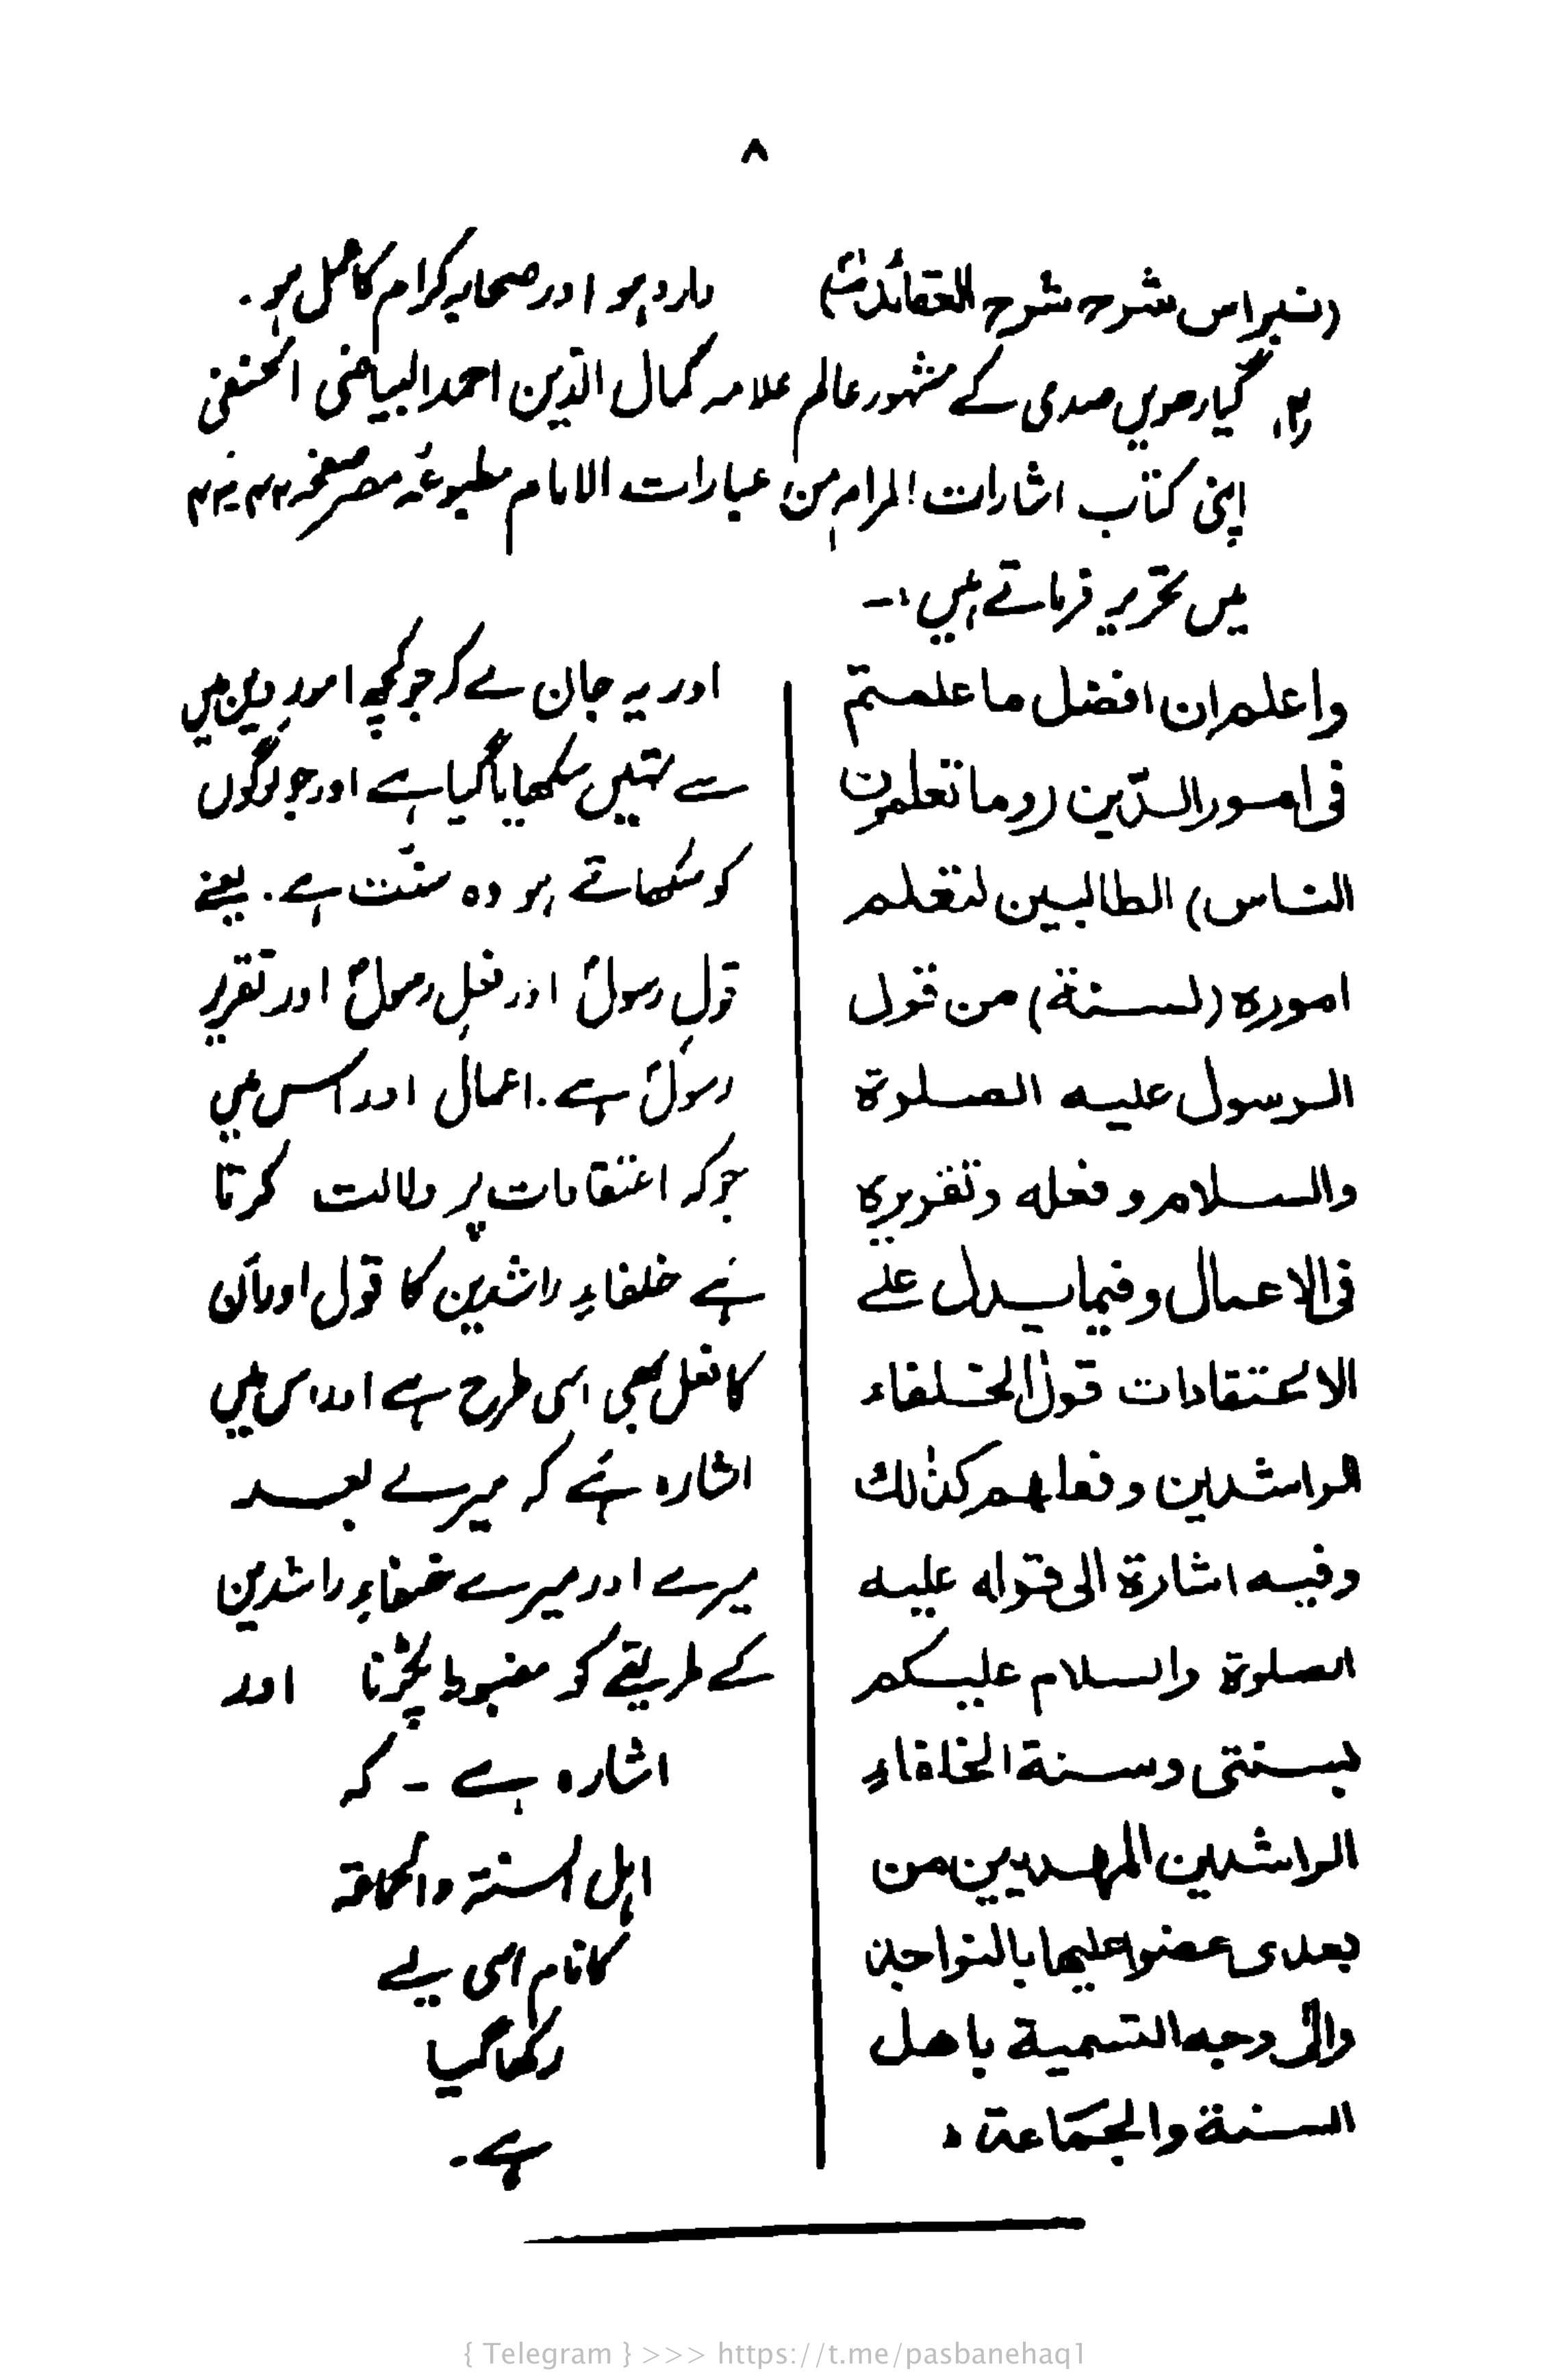 ۸
(نبراس شرح شرح العقائد وارد ہو اور صحابہ کرام کا عمل ہو۔
گیارھویں صدی کے مشہور عالم علامہ کمال الدّین احمد البیاضی الحنفی
اپنی کتاب اشارات المرام من عبارات الامام مطبوعۂ مصر صفحہ
میں تحریر فرماتے ہیں :-
واعلم ان افضل ما علمتم
فی امور الدّین (وما تعلمون
الناس) الطالبین لتعلم
اموره (لسنة) من قول
الرسول علیه الصلوة
والسلام و فعله وتقریره
فی الاعمال و فیما یدل علے
الاعتقادات قول الخلفاء
الراشدین و فعلهم کذٰلك
وفیه اشارة الی قوله علیه
الصلوة والسلام علیکم
بسنتی وسنة الخلفاءِ
الراشدین المهدیین من
بعدی عضوا علیها بالنواجذ
والی وجه التسمیة باهل
السنة والجمَاعة ؛
اور یہ جان لے کہ جو کچھ امورِ دین میں
سے تمہیں سکھایا گیا ہے اور جو لوگوں
کو سکھاتے ہو وہ سنّت ہے۔ یعنے
قولِ رسولؐ اور فعلِ رسولؐ اور تقریر
رسولؐ ہے۔ اعمال اور اس میں
جو کہ اعتقادات پر دلالت کرتا
ہے خلفاءِ راشدین کا قول اور اُن
کا فعل بھی اسی طرح ہے اور اس میں
اشارہ ہے کہ میرے بعد
میرے اور میرے خلفاءِ راشدین
کے طریقے کو مضبوط پکڑنا اور
اشارہ ہے - کہ
اہل السنۃ والجماعۃ
کا نام اسی لیے
رکھا گیا
ہے۔
{ Telegram } >>> https://t.me/pasbanehaq1